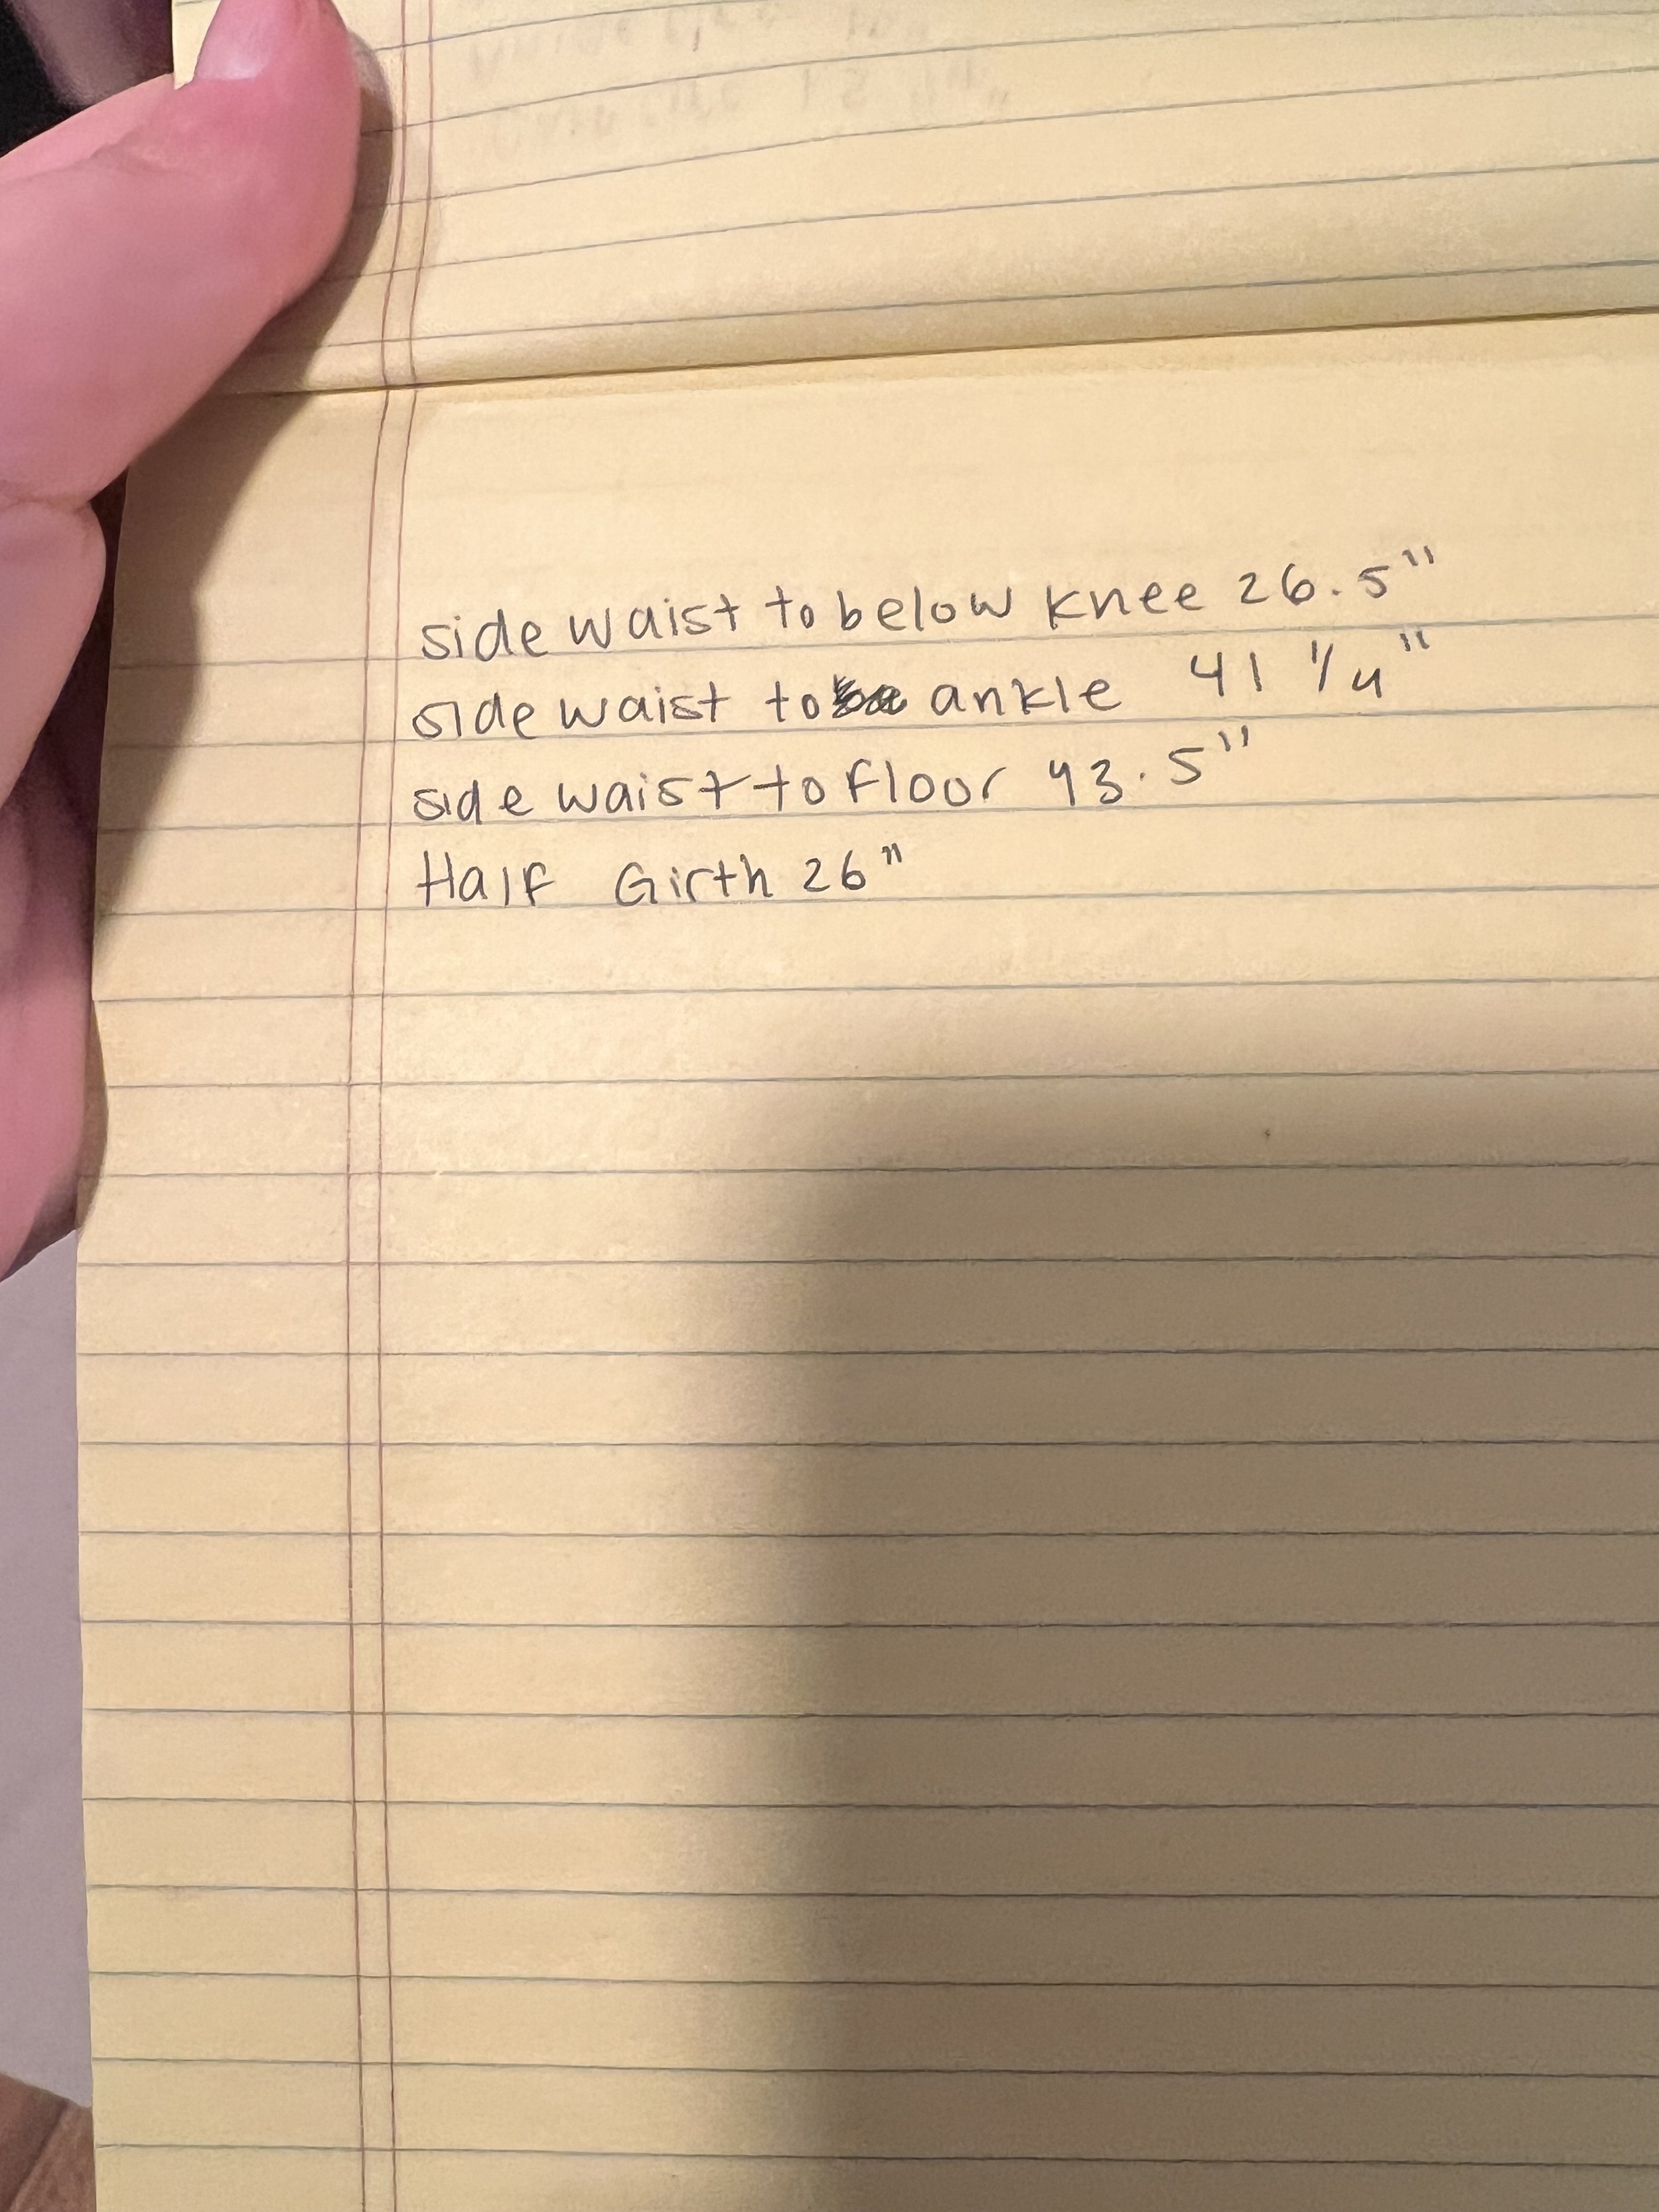 side waist to below knee 26.5"
side waist to ankle 41 1/4"
side waist to floor 43.5"
Half Girth 26"